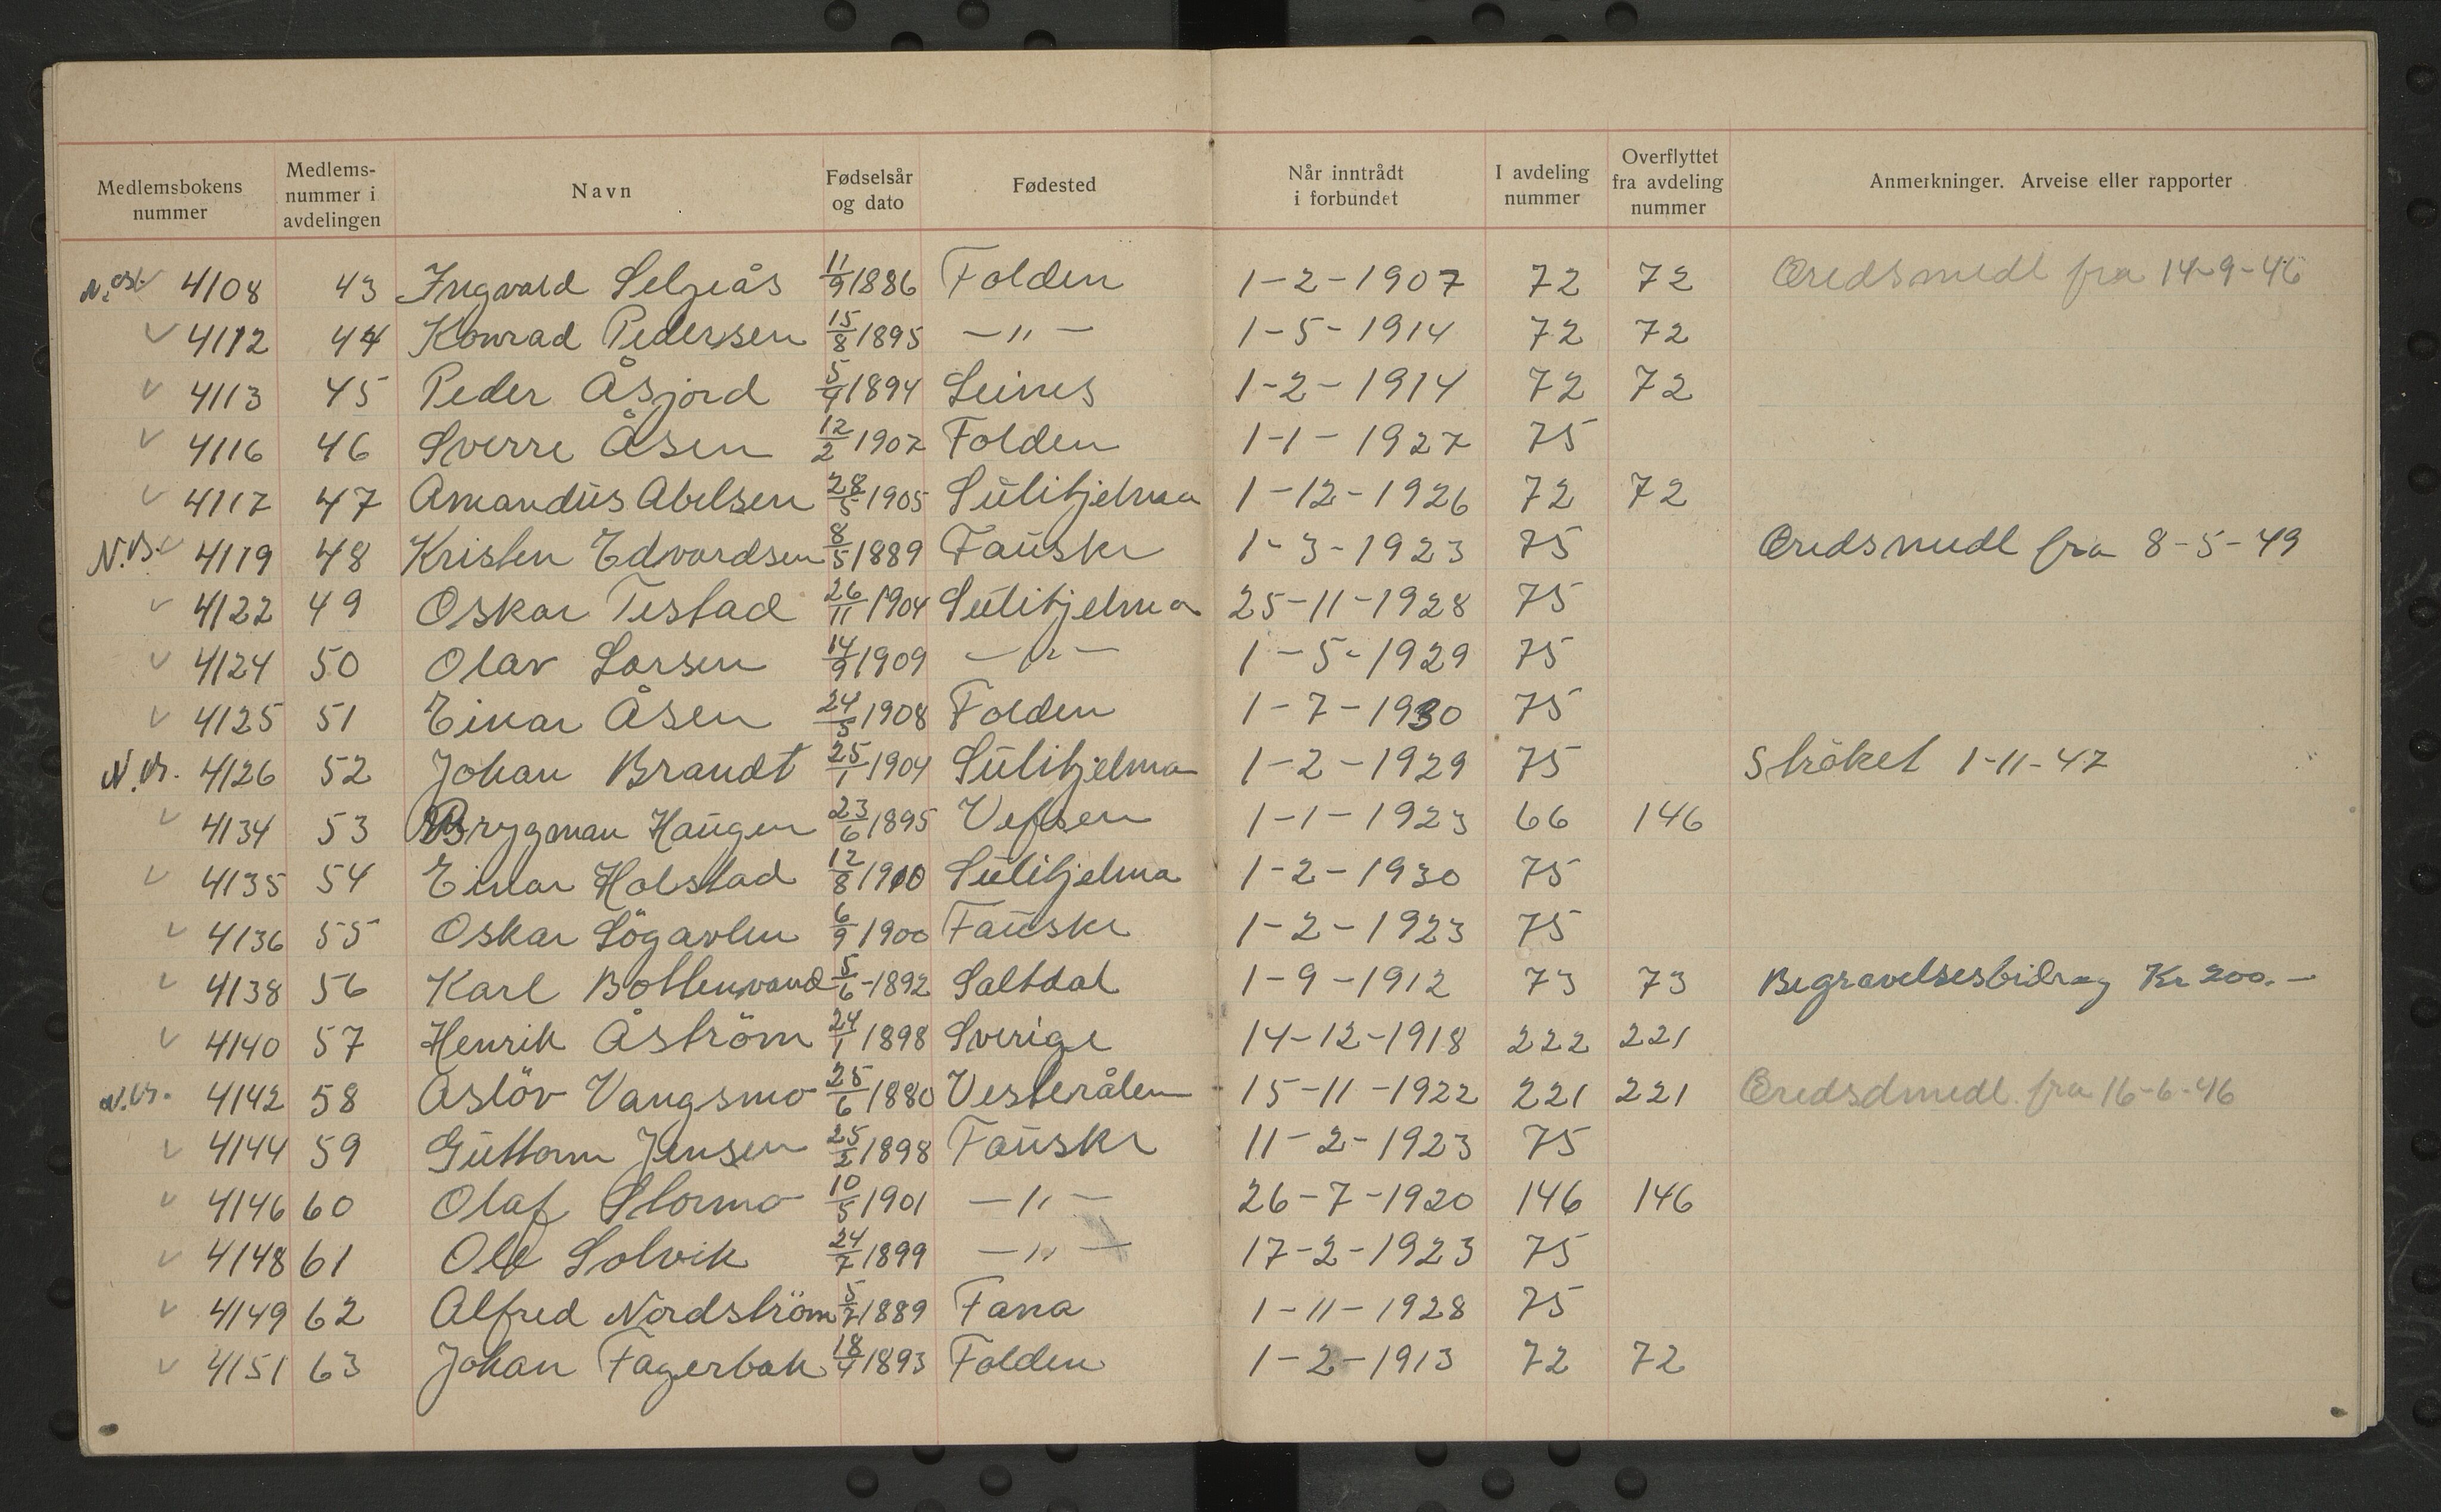 Medlemsbokens nummer | Medlems-nummer i avdelingen | Navn | Fødselsår og dato | Fødested | Når inntrådt i forbundet | I avdeling nummer | Overflyttet fra avdeling nummer | Anmerkninger. Arveise eller rapporter
4108 43 Ingvald Seljeås 11/9 1886 Folden 1-2-1907 72 72 Æredsmedl fra 14-9-46
4112 44 Konrad Pedersen 15/8 1895 -"- 1-5-1914 72 72
4113 45 Peder Åsjord 5/4 1894 Leines 1-2-1914 72 72
4116 46 Sverre Åsen 12/2 1907 Folden 1-1-1927 75
4117 47 Amandus Abelsen 28/5 1905 Sulitjelma 1-12-1926 72 72
N.B. 4119 48 Kristen Edvardsen 8/5 1889 Fauske 1-3-1923 75 Æredsmedl fra 8-5-49
4122 49 Oskar Testad 26/11 1904 Sulitjelma 25-11-1928 75
4124 50 Olav Larsen 14/9 1909 -"- 1-5-1929 75
4125 51 Einar Åsen 24/5 1908 Folden 1-7-1930 75
N.B. 4126 52 Johan Brandt 25/1 1904 Sulitjelma 1-2-1929 75 Ströket 1-11-47
4134 53 Brygman Haugen 23/6 1895 Vefsen 1-1-1923 66 146
4135 54 Einar Holstad 12/8 1910 Sulitjelma 1-2-1930 75
4136 55 Oskar Søgavlen 6/9 1900 Fauske 1-2-1923 75
4138 56 Karl Bottenvand 5/6-1892 Saltdal 1-9-1912 73 73 Begravelsesbidrag Kr 200.-
4140 57 Henrik Åström 24/1 1898 Sverige 14-12-1918 222 221
N.B. 4142 58 Aslöv Vangsmo 25/6 1880 Vesterålen 15-11-1922 221 221 Æredsdmedl. fra 16-6-46
4144 59 Guttorm Jensen 25/2 1898 Fauske 11-2-1923 75
4146 60 Olaf Stormo 10/5 1901 -"- 26-7-1920 146 146
4148 61 Ole Solvik 24/7 1899 -"- 17-2-1923 75
4149 62 Alfred Nordström 5/7 1889 Fana 1-11-1928 75
4151 63 Johan Fagerbak 18/4 1893 Folden 1-2-1913 72 72